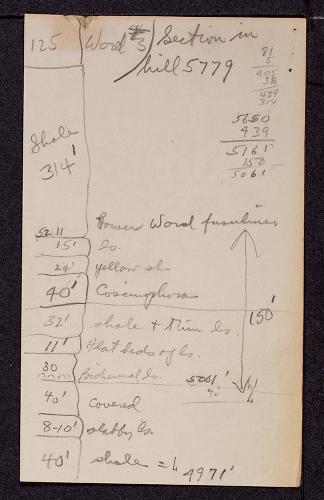 125 Word #3 Section in
hill 5779
81
5
405
34
439
314
5650
439
5161
150
5061
Shale
314'
Lower Word fusulines
5211
15' ls.
24' yellow sh
40'
150'
32' shale + thin ls.
11' flat beds of ls.
30 Biohermal ls. 5061'
40' Covered
8-10' slabby ls.
40' shale = 4971'